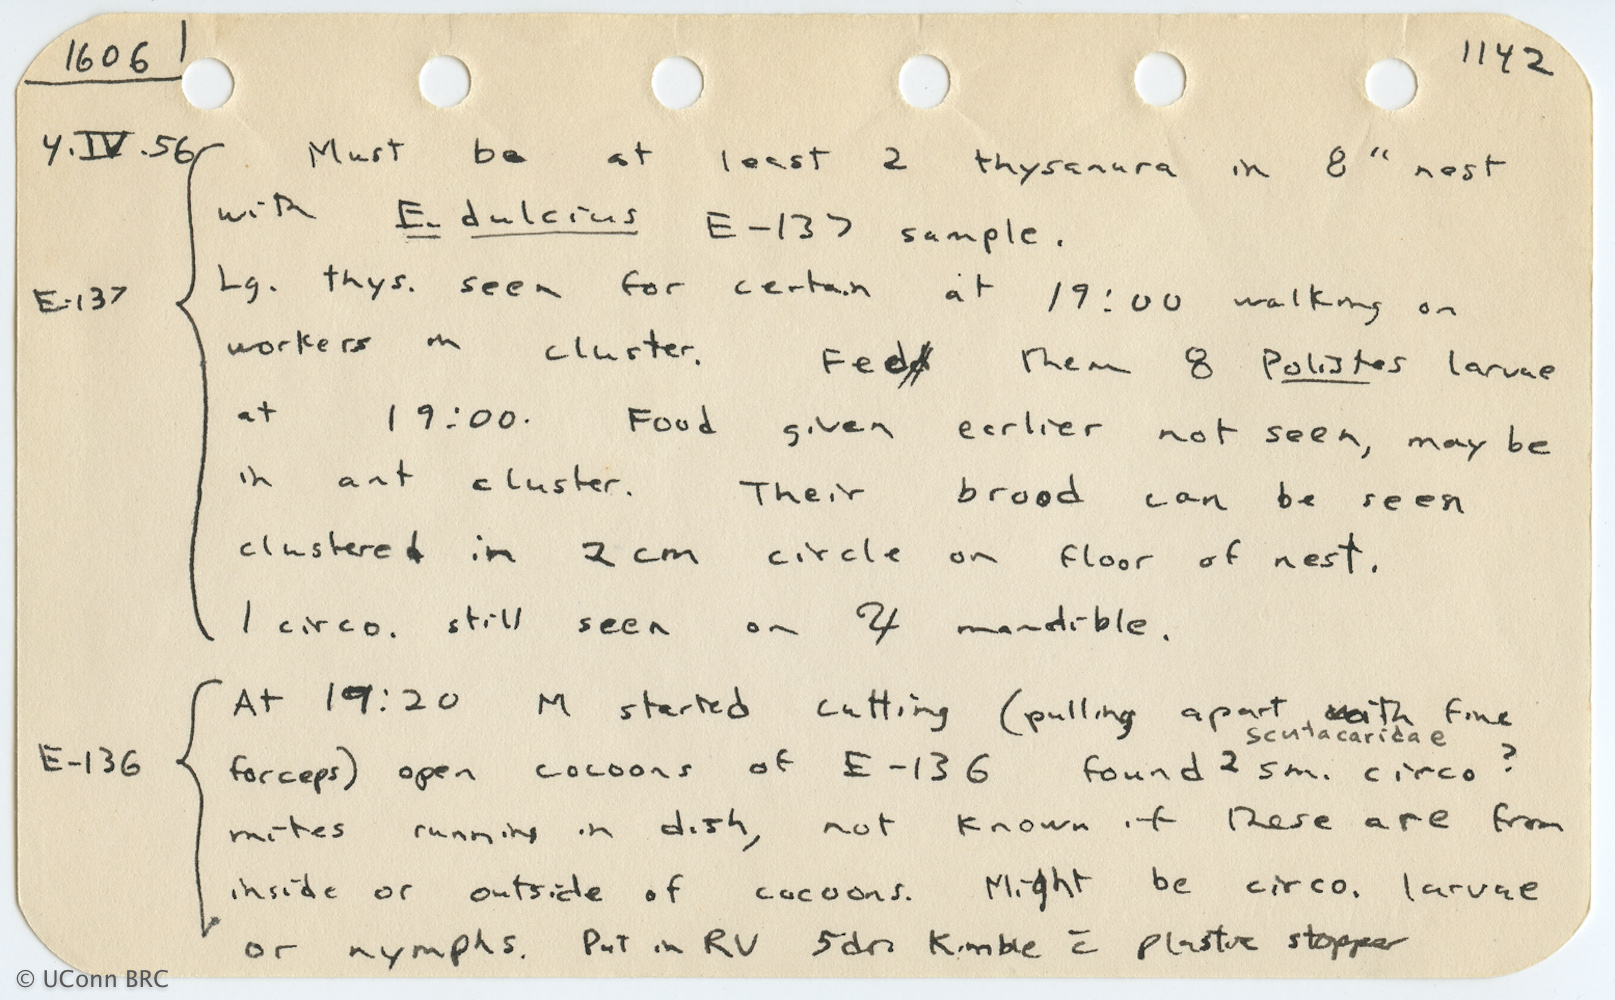 1606 1142
4.IV.56 Must be at least 2 thysanura in 8" nest
with E. dulcius E-137 sample.
E-137 Lg. thys. seen for certain at 19:00 walking on
workers in cluster. Fed them 8 Polistes larvae
at 19:00. Food given earlier not seen, may be
in ant cluster. Their brood can be seen
clustered in 2 cm circle on floor of nest.
1 circo. still seen on ♃ mandible.
At 19:20 M started cutting (pulling apart with fine
scutacaridae
E-136 forceps) open cocoons of E-136 found 2 sm. circo?
mites running in dish, not known if these are from
inside or outside of cocoons. Might be circo. larvae
or nymphs. Put in RV 5dri Kimble c̄ plastic stopper
© UConn BRC